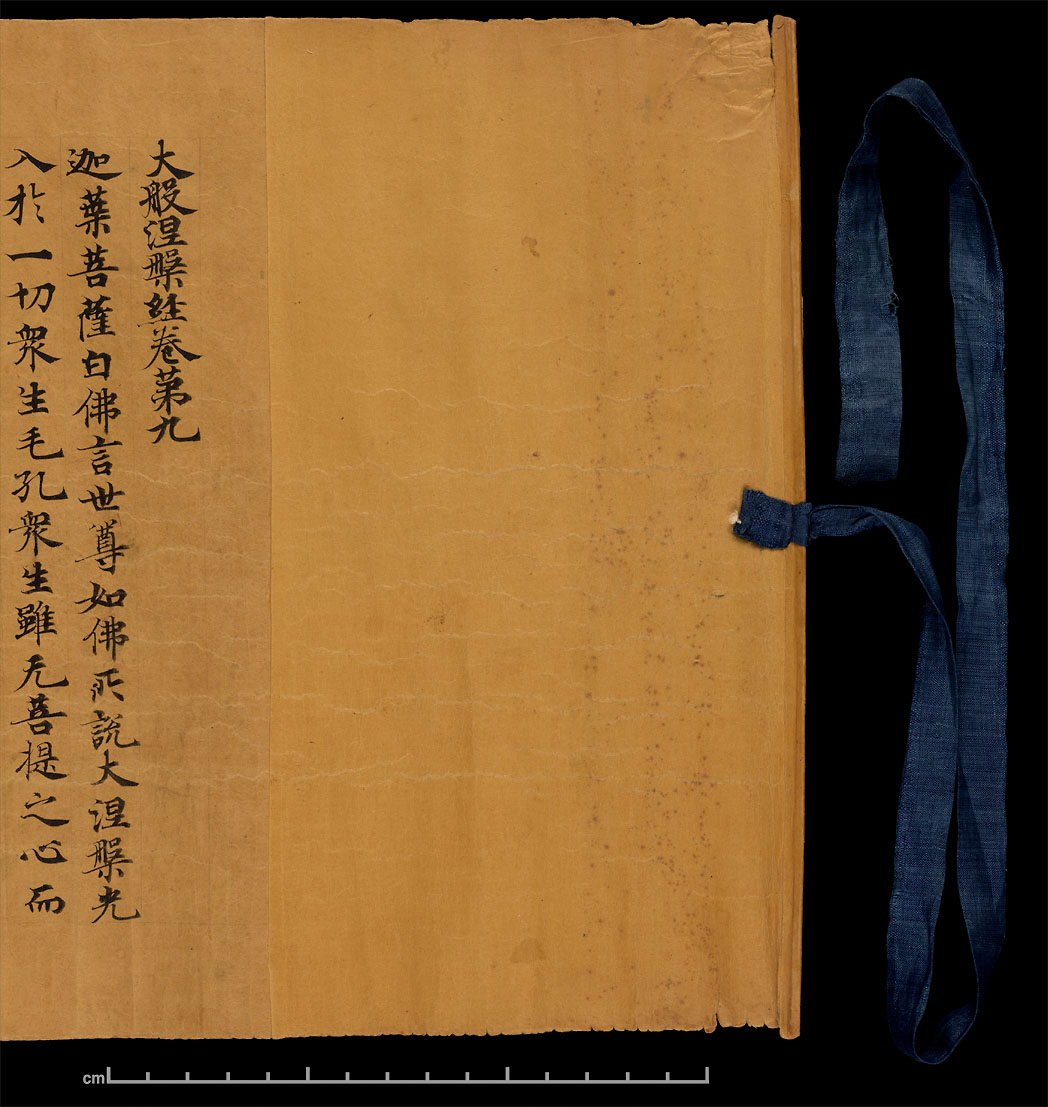 大般涅槃経卷第九
迦葉菩薩白佛言世尊如佛所說大涅槃光
入於一切衆生毛孔衆生雖无菩提之心而
cm